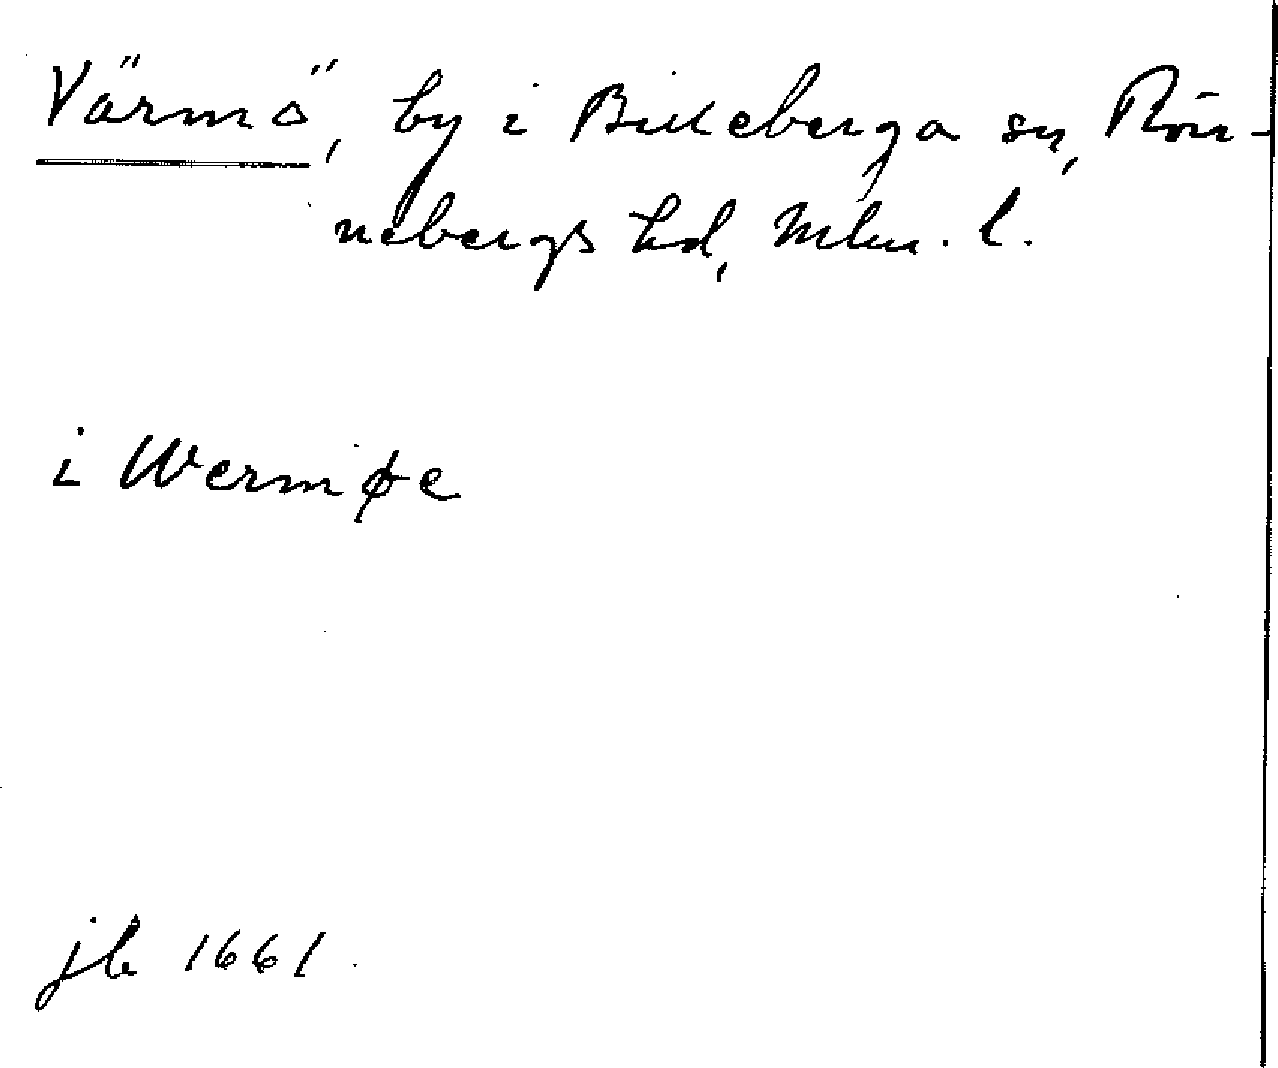 Värmö, by i Billeberga sn, Rön-
nebergs hd, Mlm. l.
i Wermøe
jb 1661.